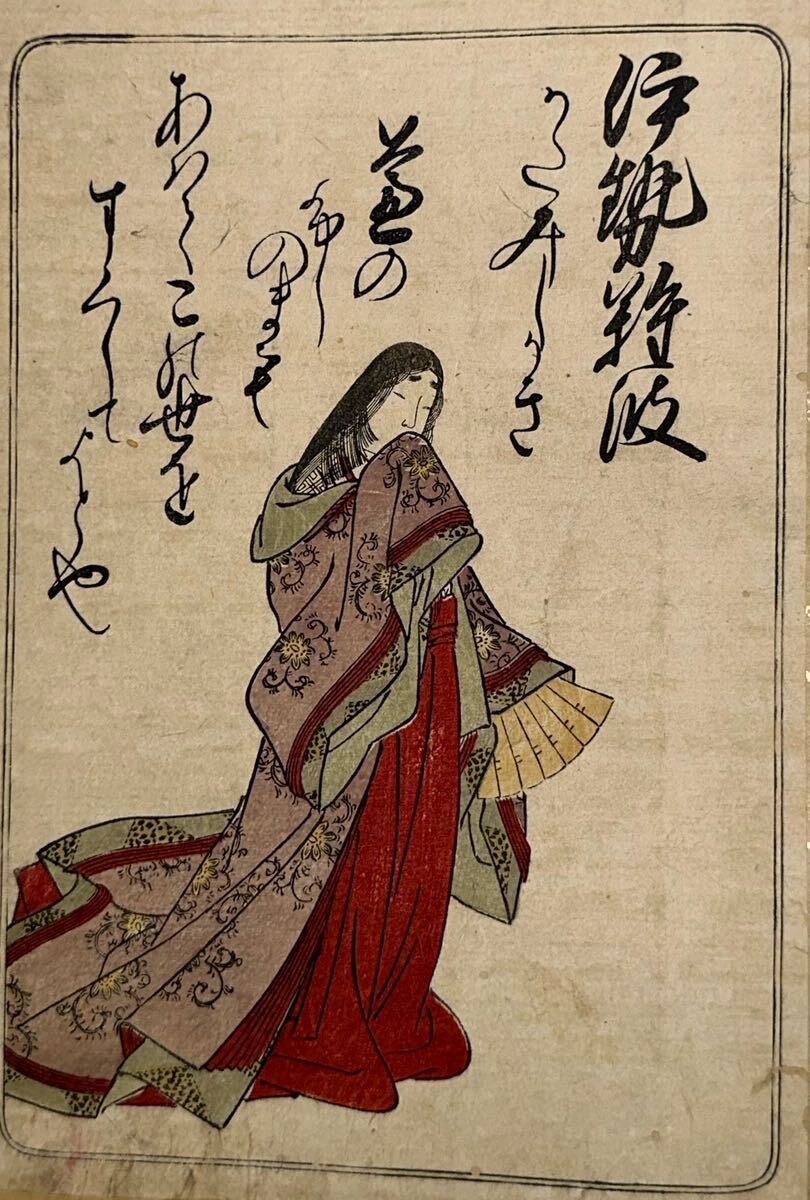 伊勢難波
かたみしかき
蘆の
ふし
のまも
あはてこの世を
すくしてよとや